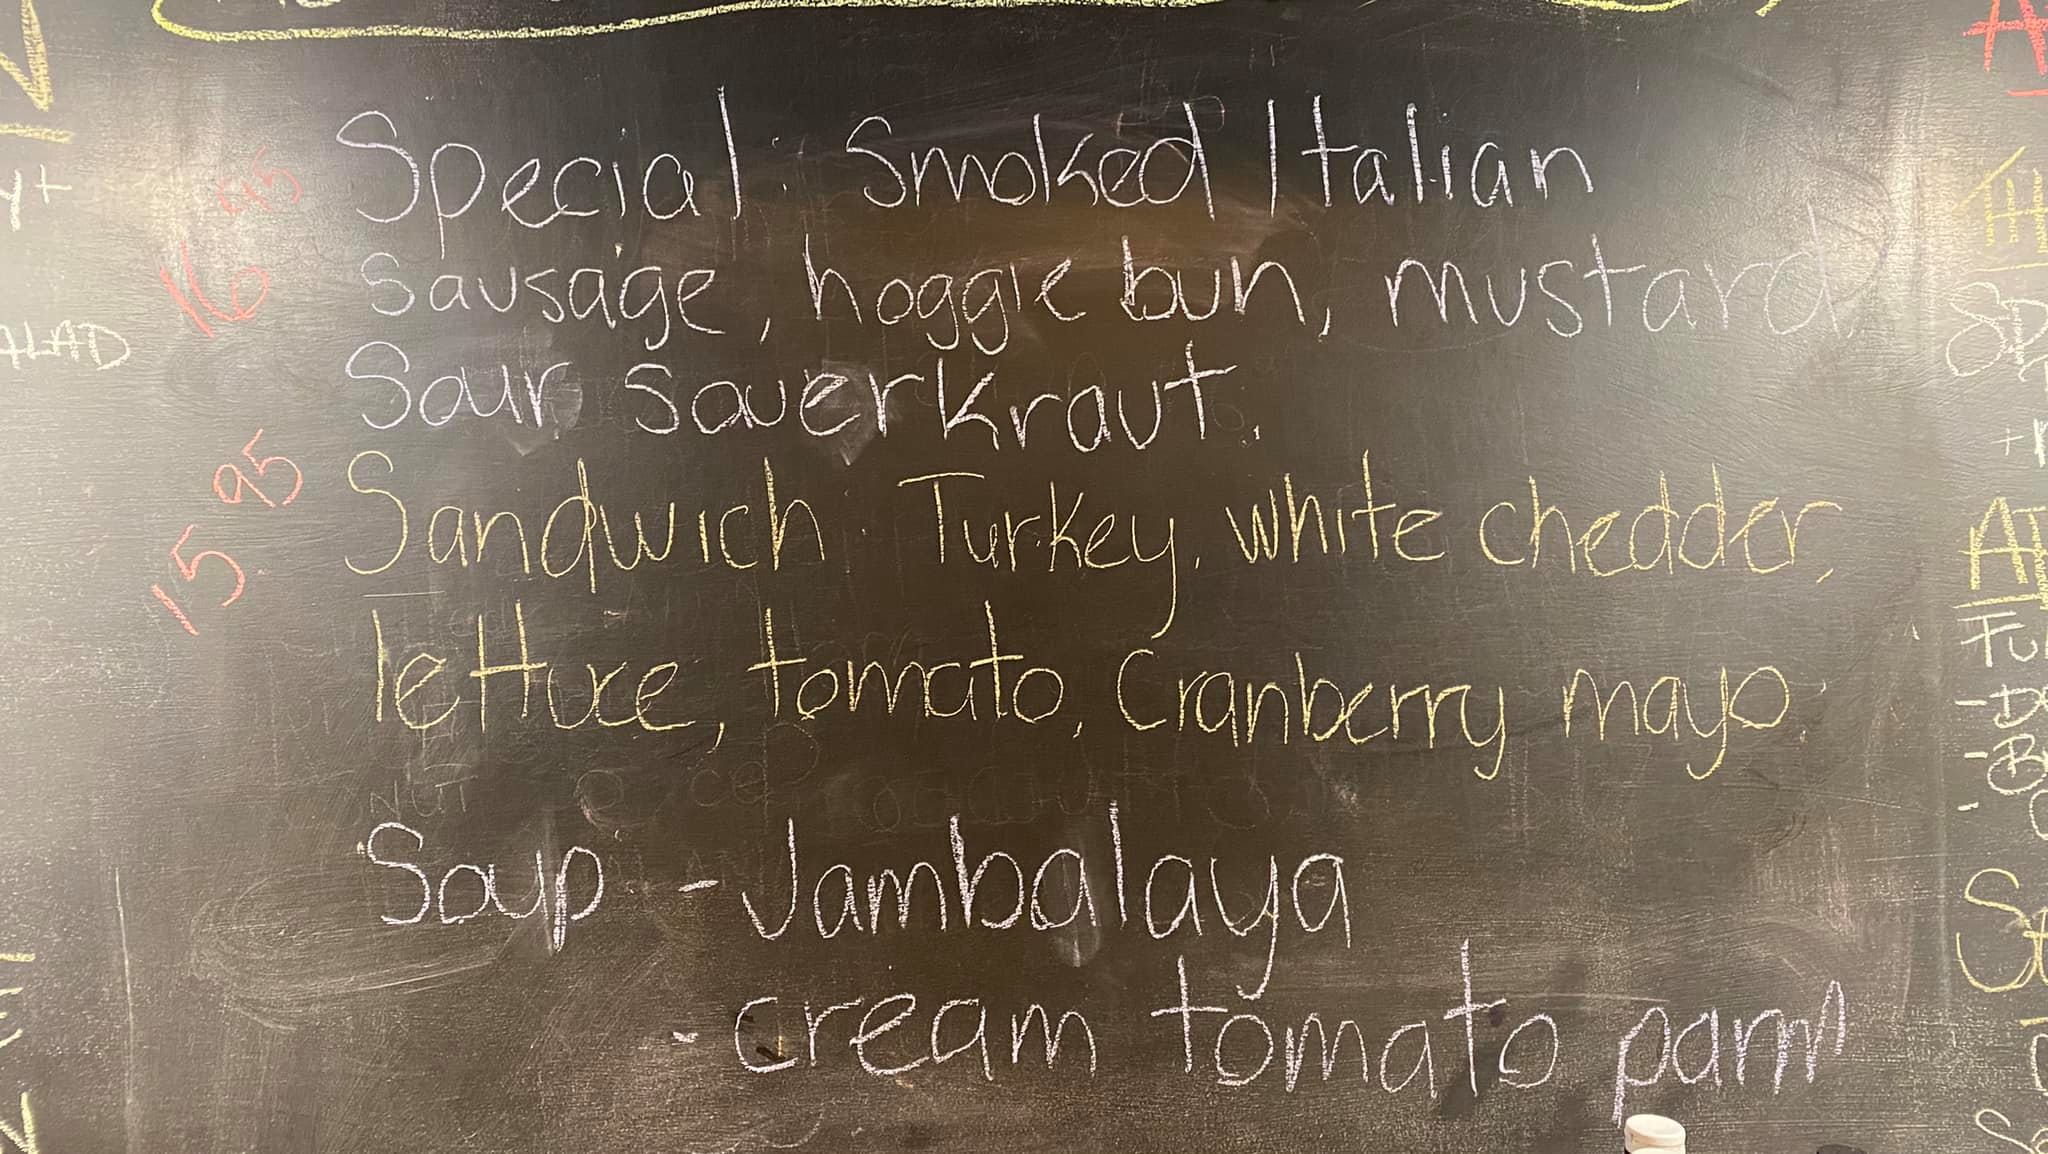 Special: Smoked Italian
16 95
Sausage, hoggie bun, mustard
Sour Sauerkraut.
15 95
Sandwich. Turkey, white chedder,
lettuce, tomato, Cranberry mayo.
Soup - Jambalaya
- cream tomato parm